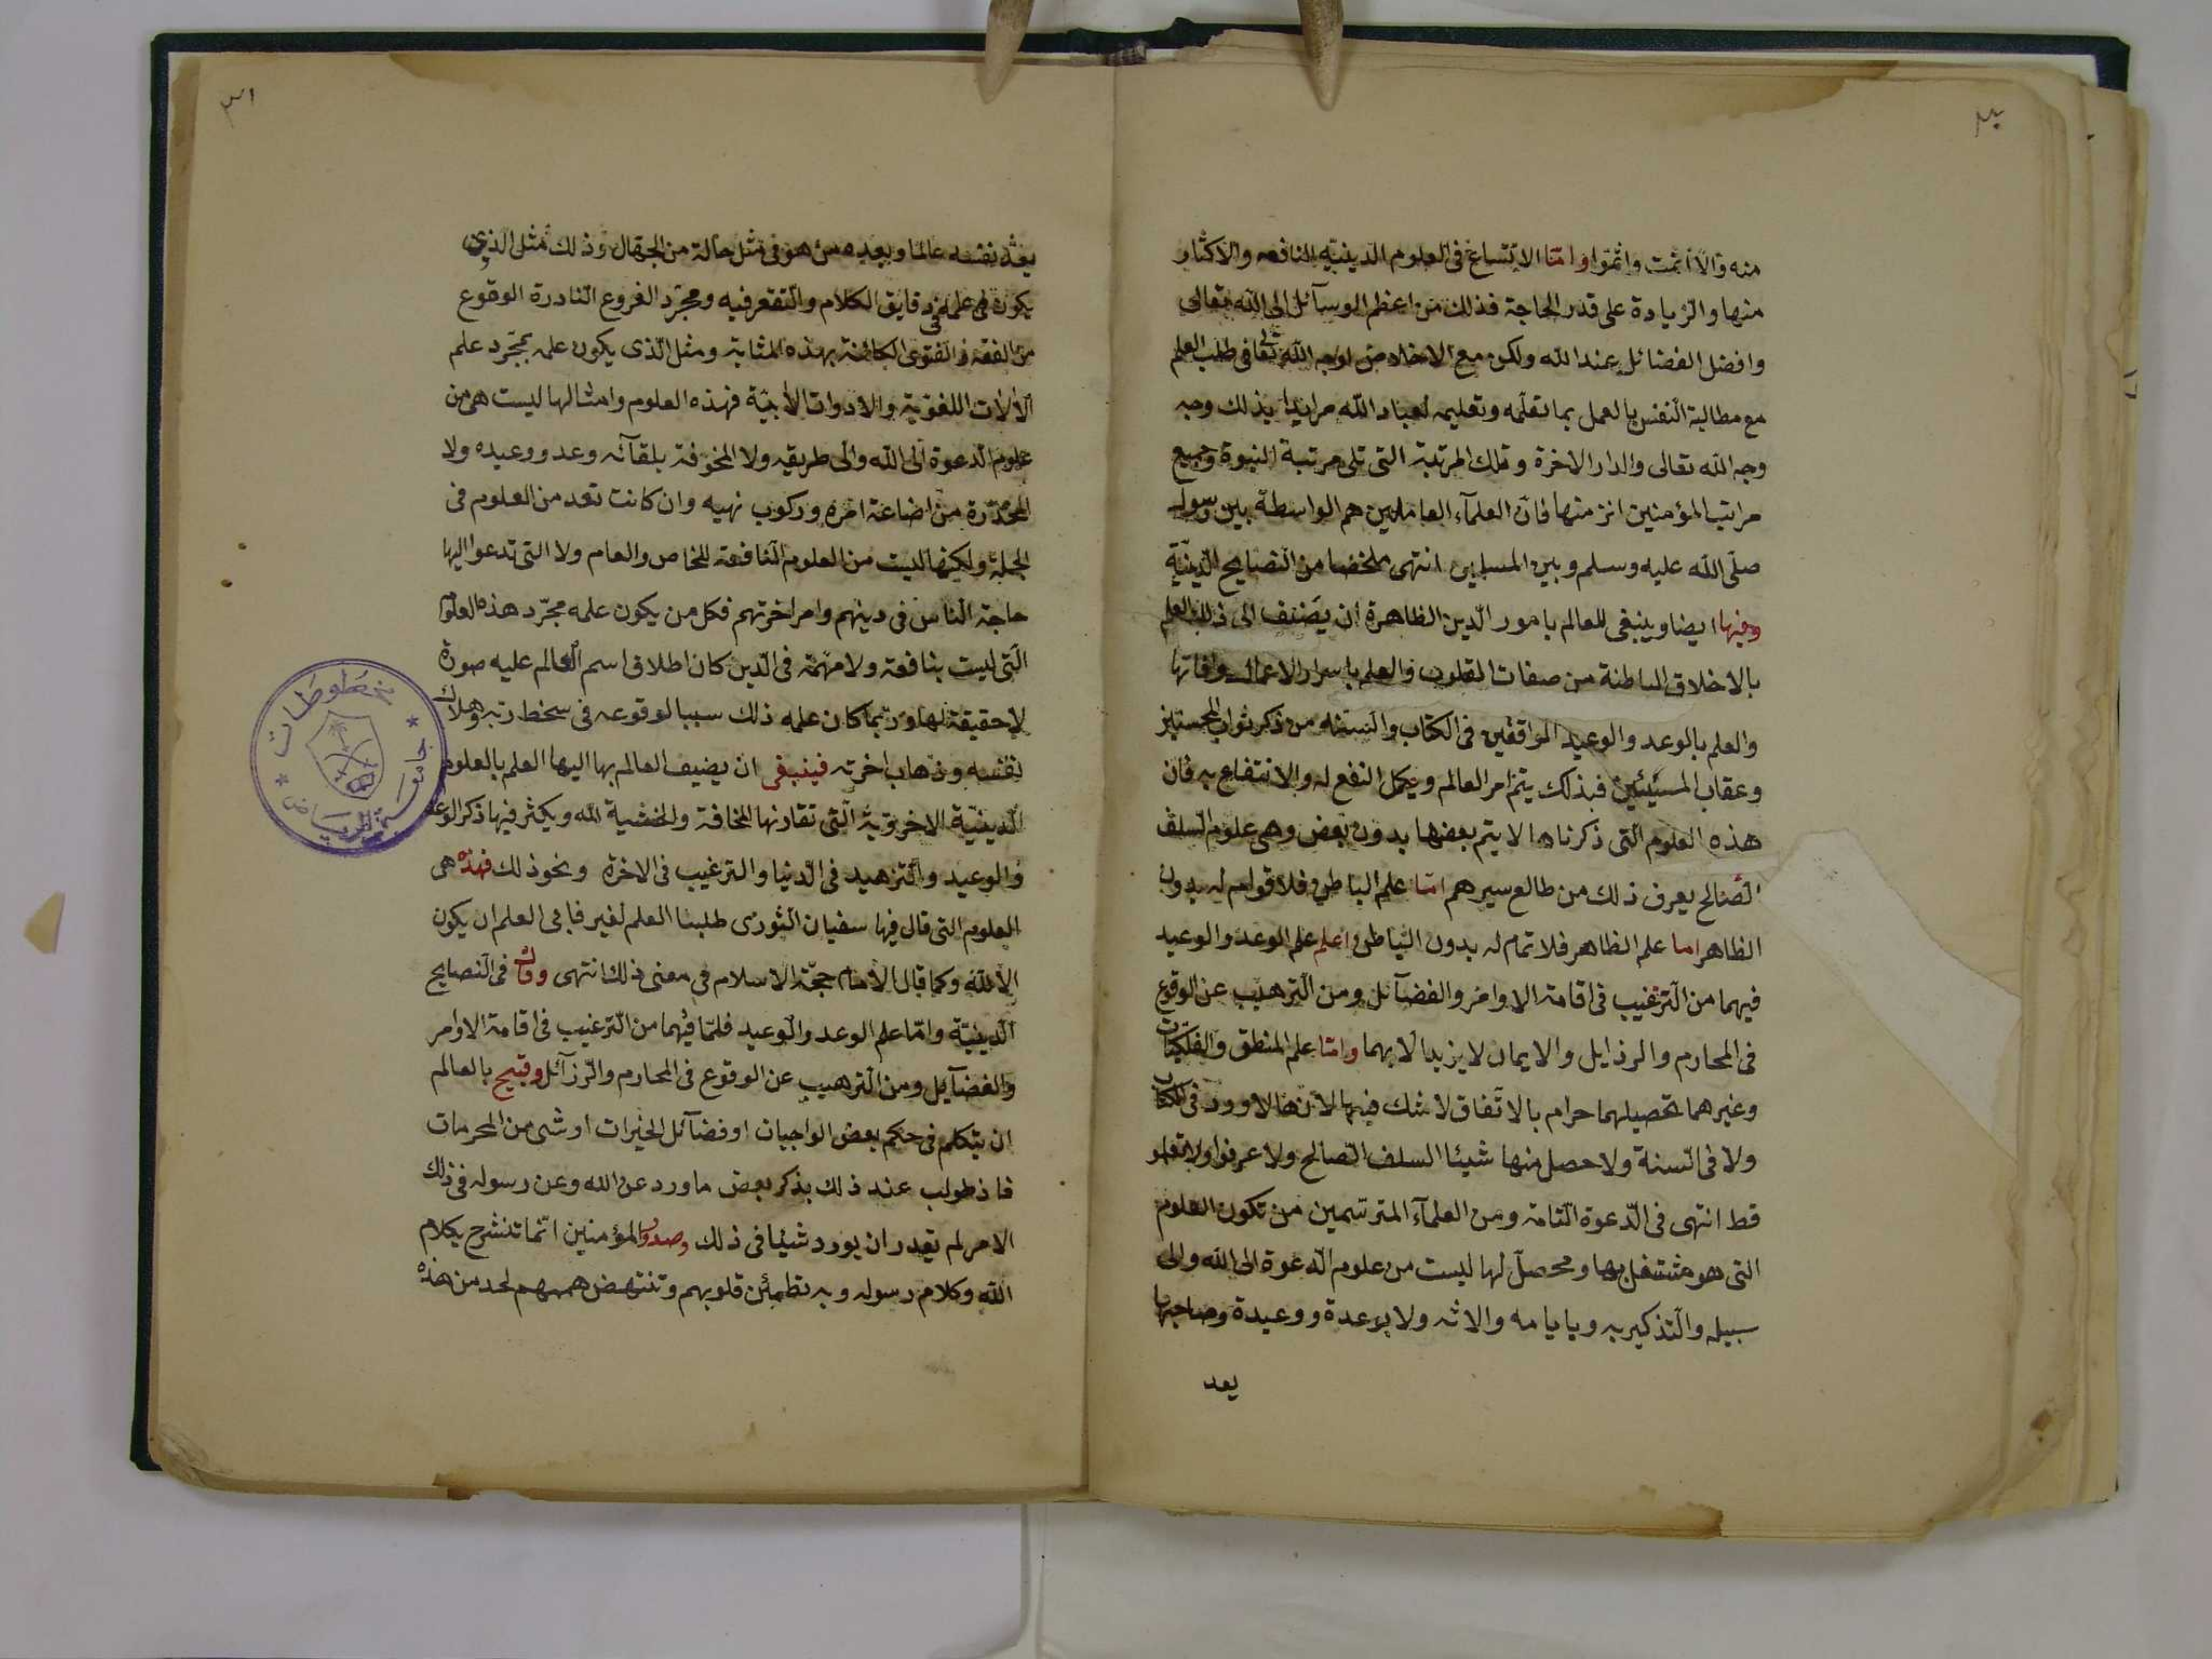 ٣٠
منه والا أثمت واثموا واما الاتساع فى العلوم الدينيه النافعه والاكثار
منها والزيادة على قدر الحاجة فذلك من اعظم الوسآئل الى الله تعالى
وافضل الفضائل عند الله ولكن مع الاخلاص لوجه الله تعا فى طلب العلم
مع مطالبة النفس بالعمل بما تعلمه وتعليمه لعباد الله مرايدا بذلك وجه
وجه الله تعالى والدار الاخرة وتلك المرتبة التى تلى مرتبة النبوة وجميع
مراتب المؤمنين انزل منها فان العلمآء العاملين هم الواسطة بين رسول
صلى الله عليه وسلم وبين المسلمين انتهى ملخصا من النصايح الدينية
وفيها ايضا وينبغى للعالم بامور الدين الظاهرة ان يضيف الى ذلك العلم
بالاخلاق الباطنة من صفات القلوب والعلم باسرار الاعمال وافاتها
والعلم بالوعد والوعيد الواقفين فى الكتاب والسنه من ذكر ثواب المحسنين
وعقاب المسيئين فبذلك يتم امر العالم ويكمل النفع له والانتفاع به فان
هذه العلوم التى ذكرناها لا يتم بعضها بدون بعض وهى علوم السلف
الصالح يعرف ذلك من طالع سيرهم اما علم الباطن فلا قوام له بدون
الظاهر اما علم الظاهر فلا تمام له بدون الباطن اعلم علم الوعد والوعيد
فيهما من الترغيب فى اقامة الاوامر والفضآئل ومن الترهيب عن الوقوع
فى المحارم والرذايل والايمان لا يزيد الا بهما واما علم المنطق والفلكيات
وغيرهما تحصيلهما حرام بالاتفاق لا شك فيها لانها لا وورد فى الكتاب
ولا فى السنة ولا حصل منها شيئا السلف الصالح ولا عرفوا ولا تعلموا
قط انتهى فى الدعوة التامة ومن العلمآء المترسمين من تكون العلوم
التى هو مشتغل بها ومحصل لها ليست من علوم الدعوة الى الله والى
سبيله والتذكير به وبايامه والائه ولا بوعدة ووعيدة وصاحبها
يعد
٣١
يعد نفسه عالما وبعده من هو فى مثل حالة من الجهال وذلك مثل الذى
يكون علمه فى دقايق الكلام والتقعر فيه ومجرد الفروع النادرة الوقوع
من الفقه والفتوى الكائنة بهذه المثابة ومثل الذى يكون علمه بمجرد علم
الآلات اللغوية والادوات الأدبية فهذه العلوم وامثالها ليست هى من
علوم الدعوة الى الله والى طريقه ولا المخوفة بلقآئه وعد ووعيده ولا
المحذرة من اضاعة امره وركوب نهيه وان كانت تعد من العلوم فى
الجملة ولكنها ليست من العلوم النافعة للخاص والعام ولا التى تدعوا اليها
حاجة الناس فى دينهم وامر اخرتهم فكل من يكون علمه مجرد هذه العلوم
التى ليست بنافعة ولا مهمة فى الدين كان اطلاق اسم العالم عليه صورة
لا حقيقة لها وربما كان علمه ذلك سببا لوقوعه فى سخط ربه وهلاك
نفسه وذهاب اخرته فينبغى ان يضيف العالم بها اليها العلم بالعلوم
الدينية الاخروية التى تقارنها المخافة والخشية لله ويكثر فيها ذكر الوعد
والوعيد والتزهيد فى الدنيا والترغيب فى الاخرة ونحو ذلك فهذه هى
العلوم التى قال فيها سفيان الثورى طلبنا العلم لغير فابى العلم ان يكون
الا لله وكما قال الامام حجة الاسلام فى معنى ذلك انتهى وقال فى النصايح
الدينية واما علم الوعد والوعيد فلما فيهما من الترغيب فى اقامة الاوامر
والفضآيل ومن الترهيب عن الوقوع فى المحارم والرزآئل وقبيح بالعالم
ان يتكلم فى حكم بعض الواجبات او فضآئل الخيرات او شى من المحرمات
فاذ طولب عند ذلك بذكر بعض ما ورد عن الله وعن رسوله فى ذلك
الامر لم يقدر ان يورد شيئا فى ذلك وصدور المؤمنين انما تنشرح بكلام
الله وكلام رسوله وبه تطمئن قلوبهم وتنتهض هممهم لحد من هذه
مخطوطات
جامعة الرياض